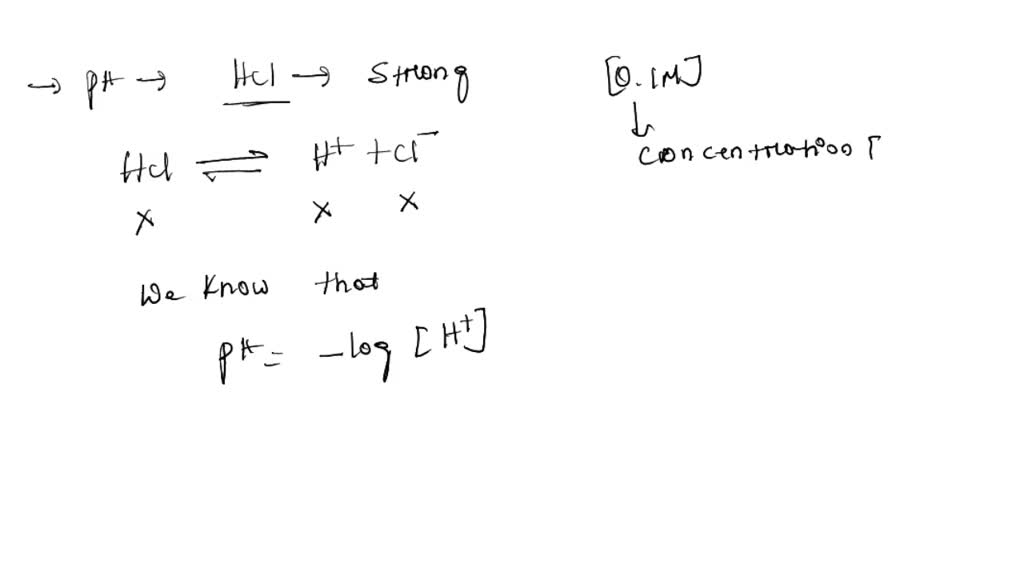 → pH → HCl → Strong [0.1M]
↓
concentration
HCl ⇌ H⁺ + Cl⁻
x x x
We know that
pH = -log [H⁺]